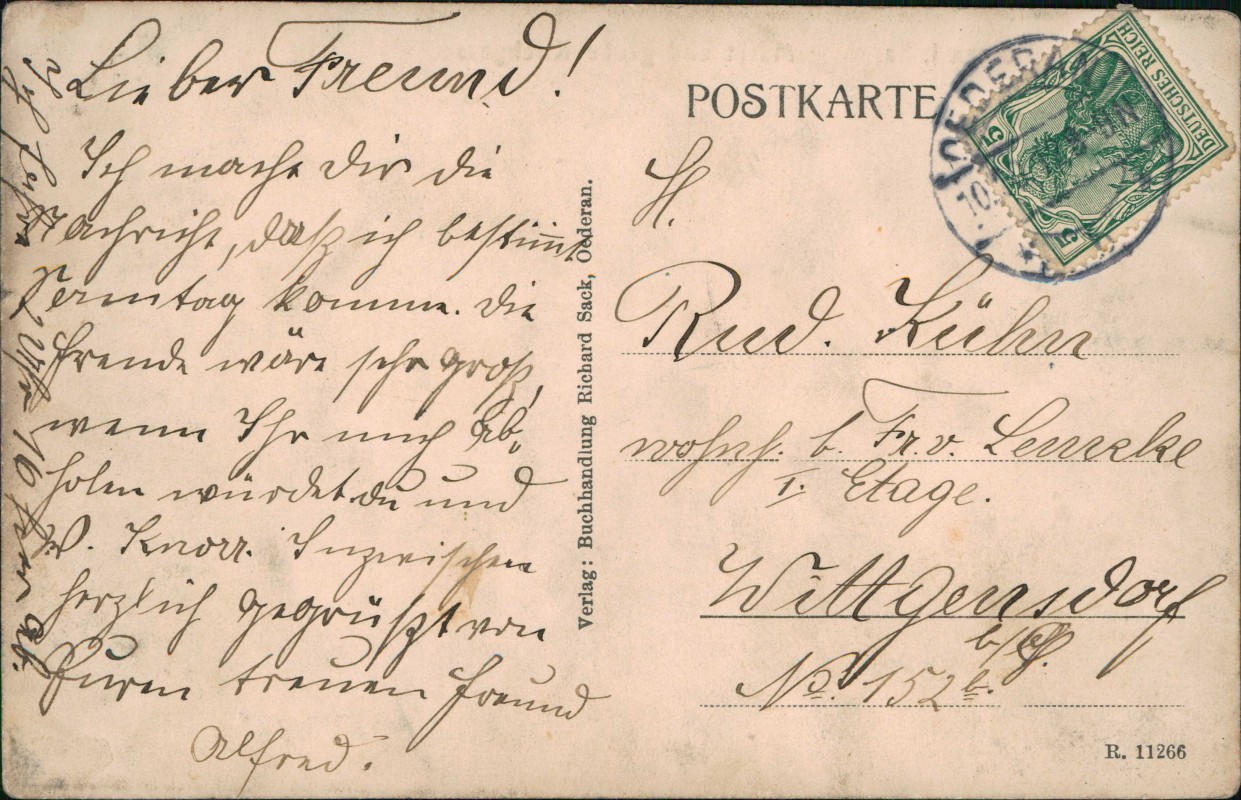 Lieber Freund!
Ich mache Dir die
Nachricht, daß ich bestimmt
Sonntag komme. Die
Freude wäre sehr groß,
wenn Ihr mich Ab„
holen würdet. Du und
W. Knorr. Inzwischen
herzlich gegrüßt von
Eurem treuen Freund
Alfred.
Ich fahre 2 Uhr 10 hier ab.
Verlag: Buchhandlung Richard Sack, Oederan.
POSTKARTE
DEUTSCHES REICH
5
5
OEDERAN
H.
Rud. Kühn
wohnh. b. Fr. v. Lemcke
I. Etage.
Wittgensdorf
No. 152 b.
R. 11266